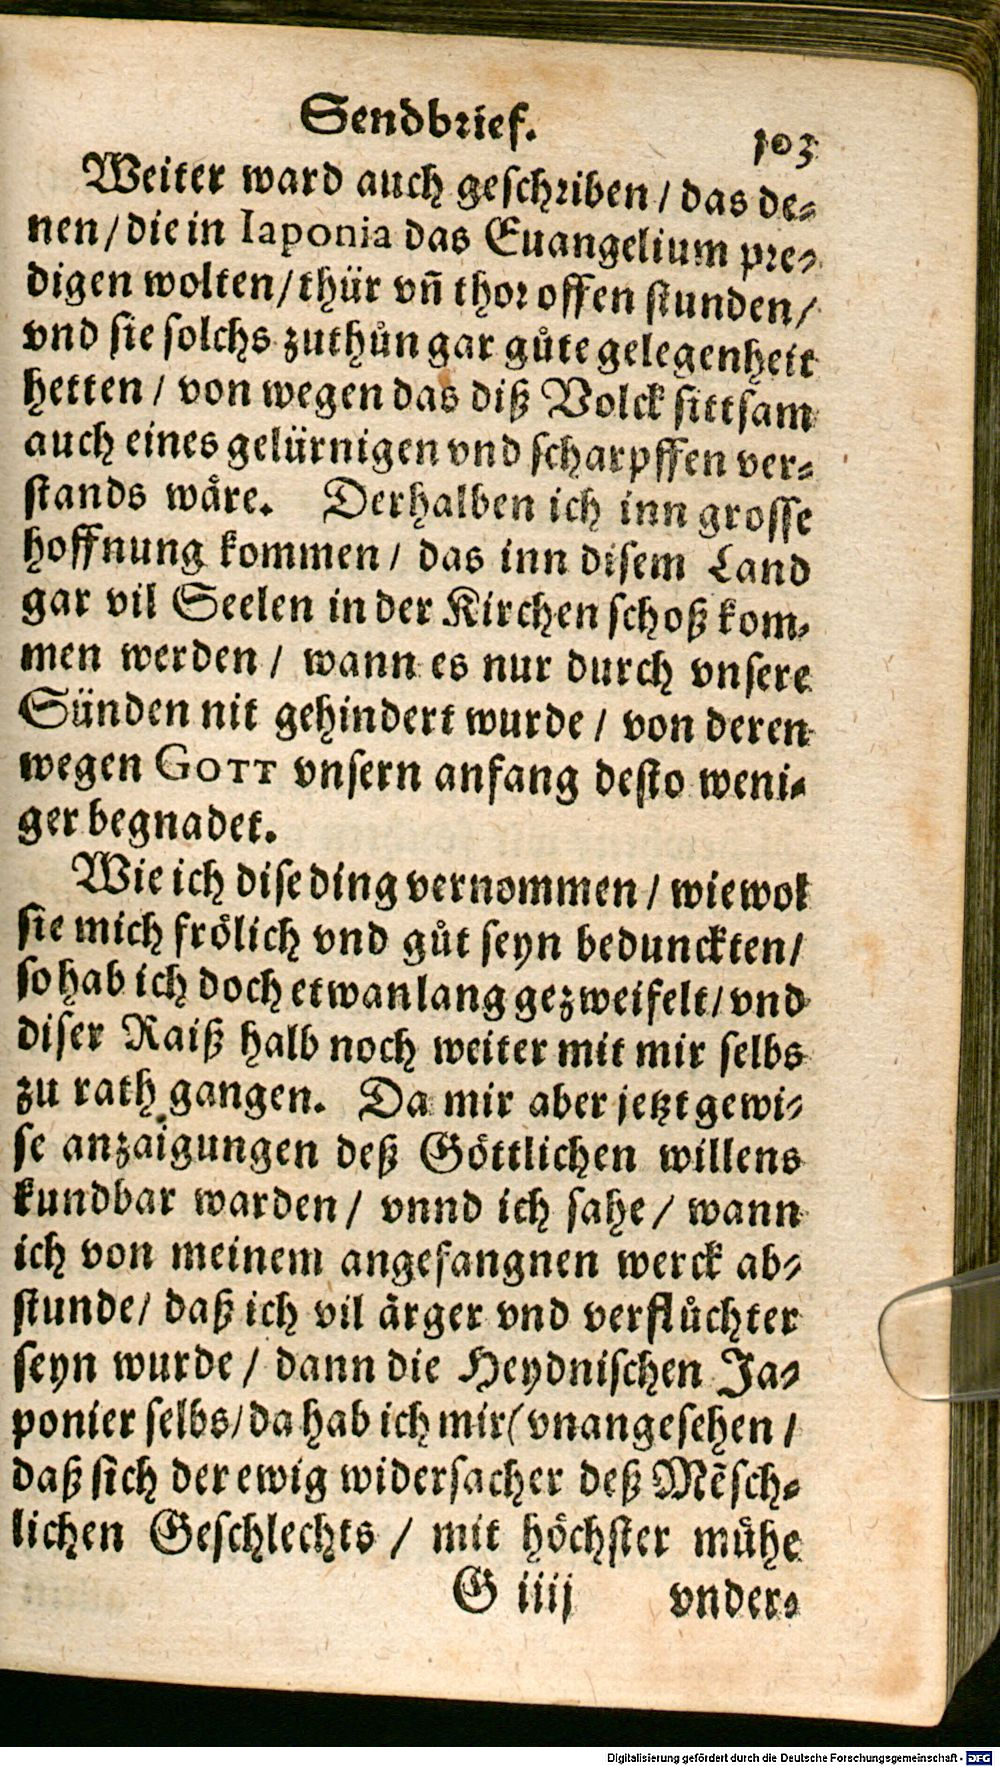 Sendbrief.
103
Weiter ward auch geschriben / das de-
nen / die in Iaponia das Euangelium pre-
digen wolten / thür vñ thor offen stunden /
vnd sie solchs zuthůn gar gůte gelegenheit
hetten / von wegen das diß Volck sittsam
auch eines gelürnigen vnd scharpffen ver-
stands wäre. Derhalben ich inn grosse
hoffnung kommen / das inn disem Land
gar vil Seelen in der Kirchen schoß kom-
men werden / wann es nur durch vnsere
Sünden nit gehindert wurde / von deren
wegen GOTT vnsern anfang desto weni-
ger begnadet.
Wie ich dise ding vernommen / wiewol
sie mich frölich vnd gůt seyn bedunckten /
so hab ich doch etwan lang gezweifelt / vnd
diser Raiß halb noch weiter mit mir selbs
zu rath gangen. Da mir aber jetzt gewi-
se anzaigungen deß Göttlichen willens
kundbar warden / vnnd ich sahe / wann
ich von meinem angefangnen werck ab-
stunde / daß ich vil ärger vnd verflůchter
seyn wurde / dann die Heydnischen Ja-
ponier selbs / da hab ich mir (vnangesehen /
daß sich der ewig widersacher deß Mẽsch-
lichen Geschlechts / mit höchster mühe
G iiij vnder-
Digitalisierung gefördert durch die Deutsche Forschungsgemeinschaft - DFG